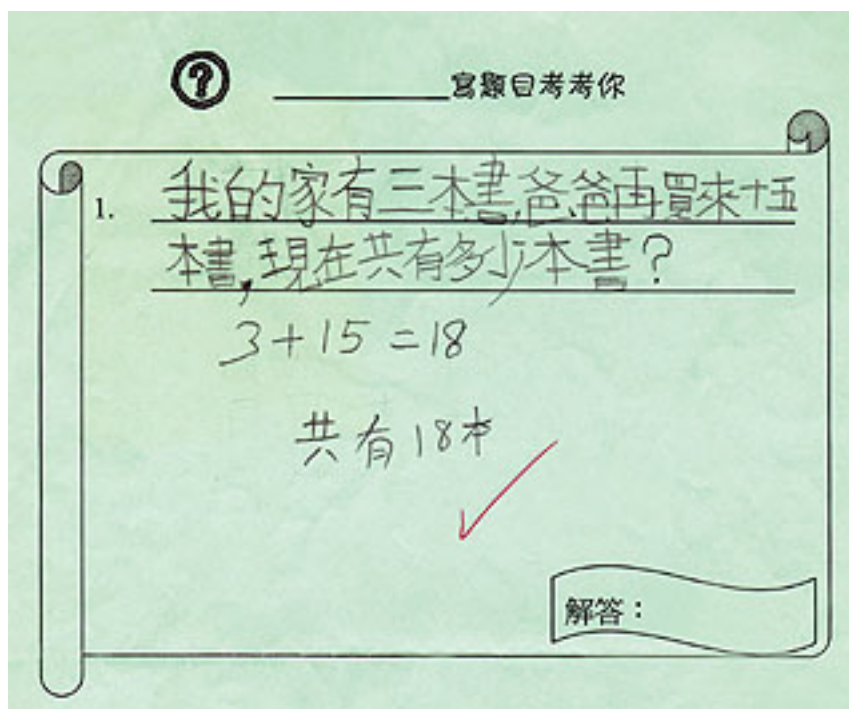 ? ________寫題目考考你
1. 我的家有三本書,爸爸再買來十五
本書,現在共有多少本書?
3+15=18
共有18本
解答：